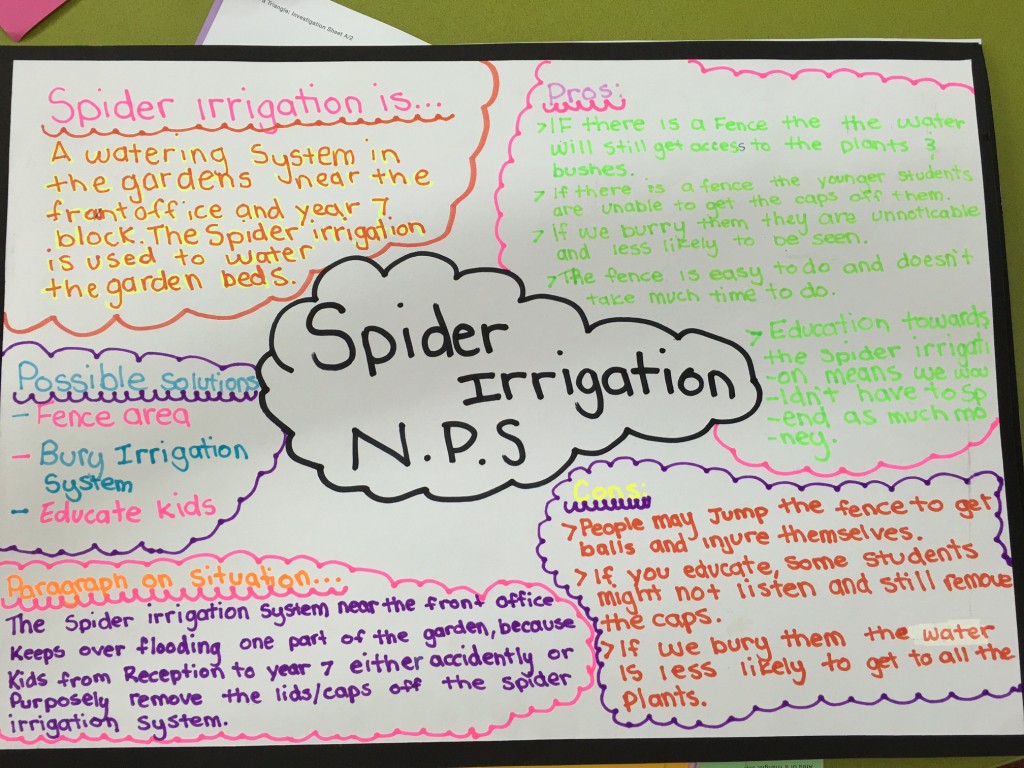 a Triangle: Investigation Sheet A/2
Spider irrigation is...
A watering System in
the gardens near the
front office and year 7
block. The Spider irrigation
is used to water
the garden beds.
Pros:
> IF there is a Fence the the water
will still get access to the plants &
bushes.
> If there is a fence the younger students
are unable to get the caps off them.
> If we burry them they are unnoticable
and less likely to be seen.
> The fence is easy to do and doesn't
take much time to do.
> Education towards
the spider irrigati
-on means we wou
-ldn't have to sp
-end as much mo
-ney.
Spider
Irrigation
N.P.S
Possible solutions
- Fence area
- Bury Irrigation
System
- Educate kids
Cons:
> People may Jump the fence to get
balls and injure themselves.
> If you educate, some students
might not listen and still remove
the caps.
> If we bury them the water
is less likely to get to all the
plants.
Paragraph on situation...
The Spider irrigation System near the front office
keeps over flooding one part of the garden, because
Kids from Reception to year 7 either accidently or
Purposely remove the lids/caps off the spider
irrigation system.